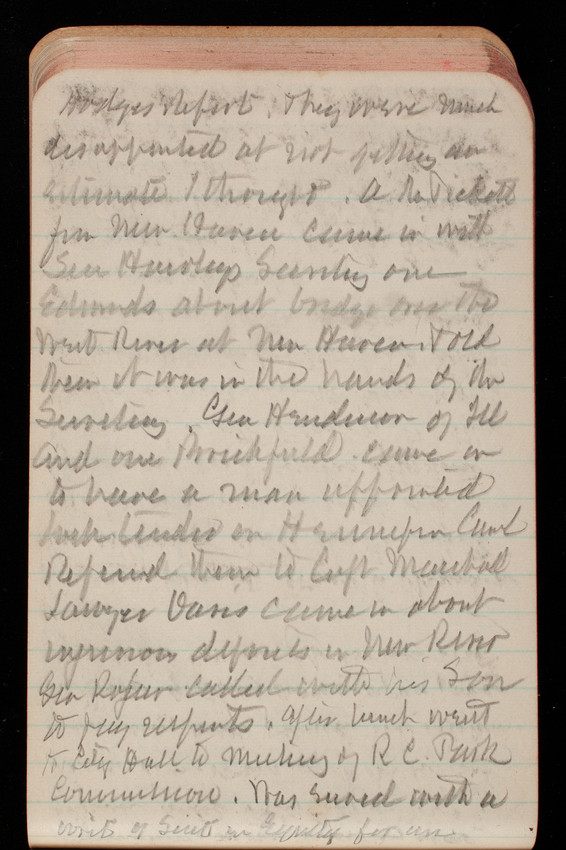 Hodges report. They were much
disappointed at not getting an
estimate I thought. A Mr Pickett
from New Haven came in with
Sen Hawleys Secretary one
Edmunds about bridge over the
West River at New Haven. Told
them it was in the hands of the
Secretary. Gen Henderson of Ill
and one Brickfield came in
to have a man appointed
lock tender on Hennepin Canl
Referred them to Capt Marshall
Lawyer Davis came in about
injurious deposits in New River
Gen called with his Son
to pay respects. After lunch went
to City Hall to meeting of R C. Park
Commission. Was served with a
writ of Suit in Equity for an